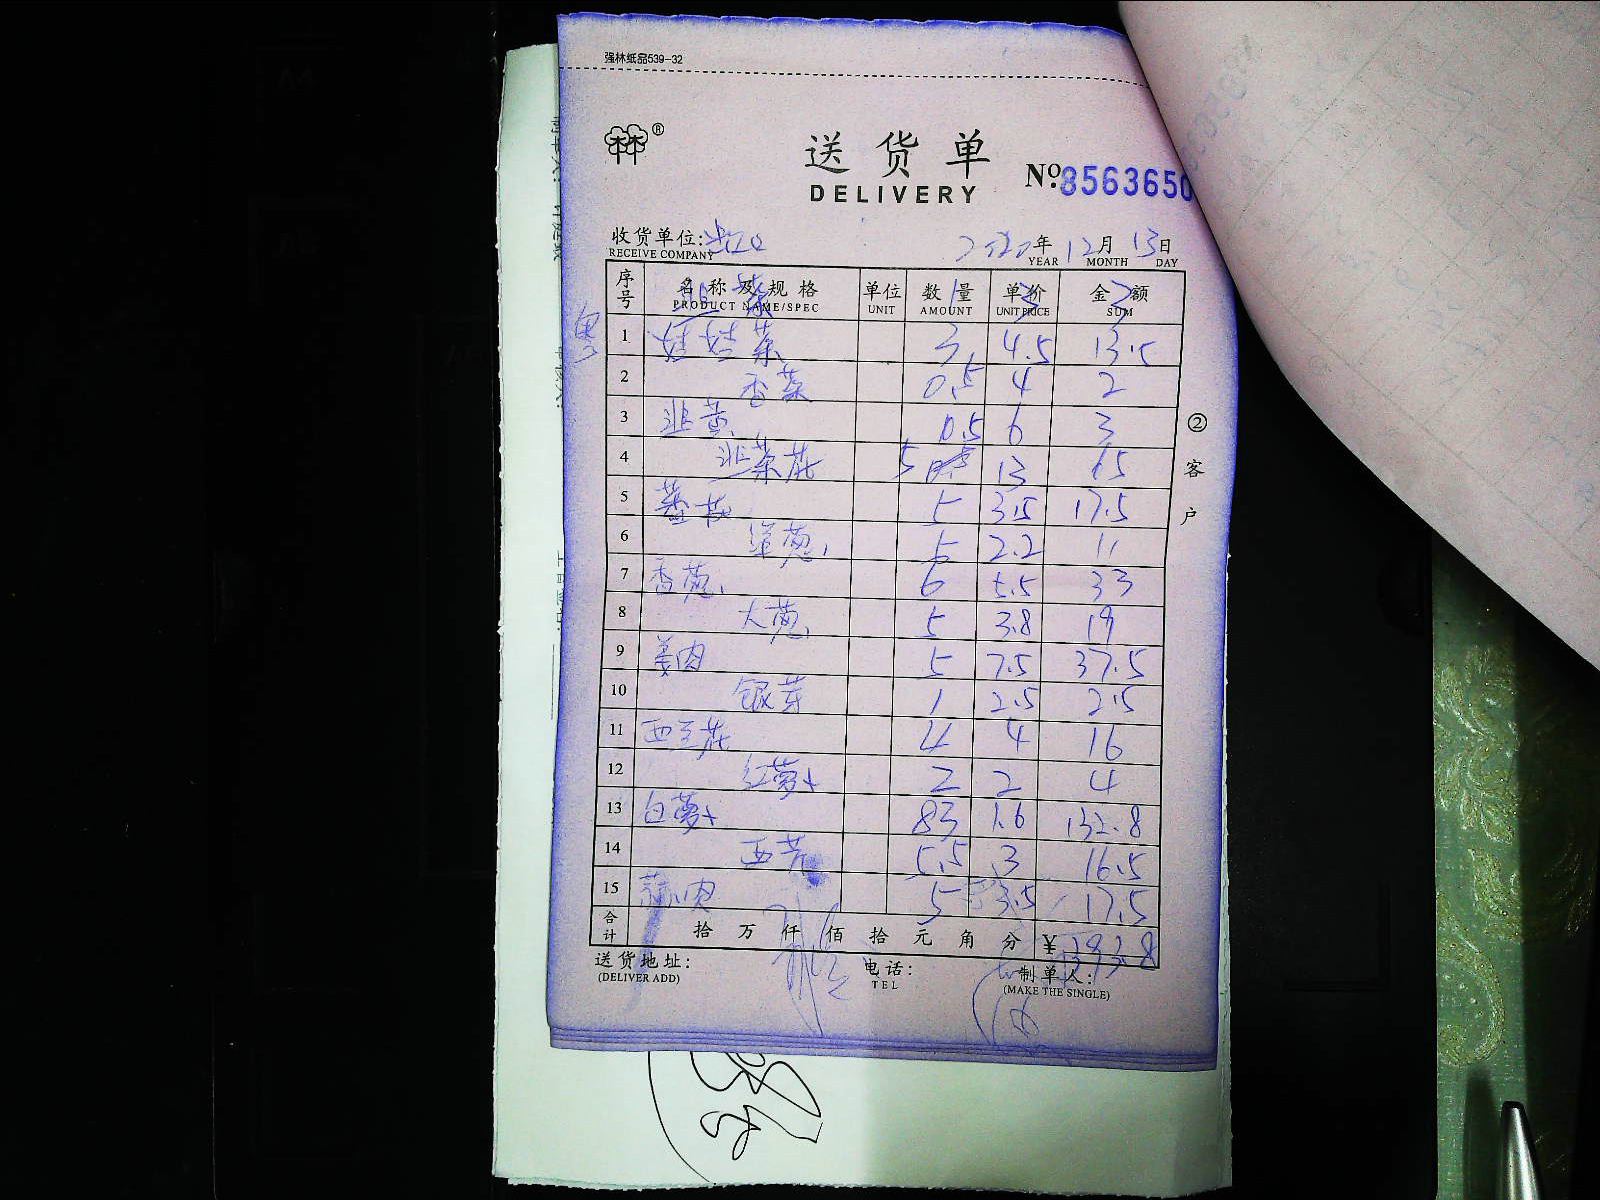 强林纸品539-32
®
送货单
DELIVERY
No. 8563650
收货单位:
RECEIVE COMPANY
2020年 12月 13日
YEAR MONTH DAY
序号 名称及规格 单位 数量 单价 金额
PRODUCT NAME/SPEC UNIT AMOUNT UNIT PRICE SUM
菜 1 3 3
粤
1 娃娃菜 3 4.5 13.5
2 香菜 0.5 4 2
3 韭黄 0.5 6 3
4 韭菜花 5 13 65
5 5 3.5 17.5
6 洋葱 5 2.2 11
7 香葱 6 5.5 33
8 大葱 5 3.8 19
9 姜肉 5 7.5 37.5
10 银芽 1 2.5 2.5
11 西兰花 4 4 16
12 红萝卜 2 2 4
13 白萝卜 83 1.6 132.8
14 西芹 5.5 3 16.5
15 蒜肉 5 3.5 17.5
合计 拾 万 仟 佰 拾 元 角 分 ¥393.8
送货地址:
(DELIVER ADD)
电话:
TEL
制单人:
(MAKE THE SINGLE)
②客户